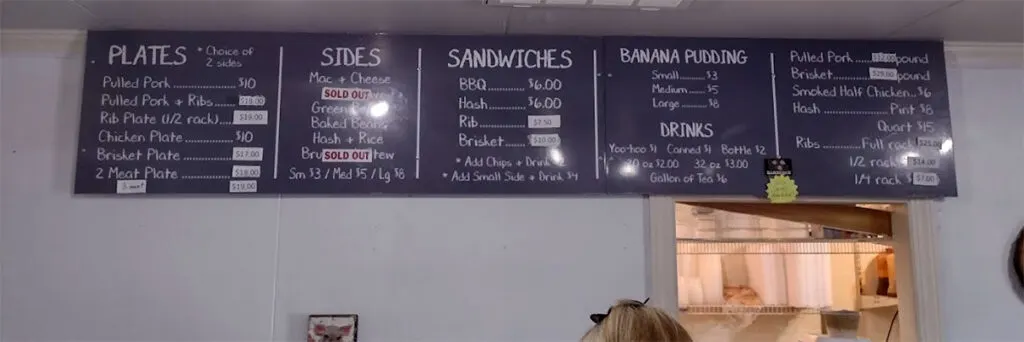 PLATES * Choice of 2 sides
Pulled Pork ............ $10
Pulled Pork + Ribs ..
Rib Plate (1/2 rack) .... $19.00
Chicken Plate ............ $10
Brisket Plate ............ $17.00
2 Meat Plate ............ $18.00
3 meat $19.00
SIDES
Mac + Cheese
SOLD OUT
Green
Baked Beans
Hash + Rice
SOLD OUT
Sm $3 / Med $5 / Lg $8
SANDWICHES
BBQ ............ $6.00
Hash ............ $6.00
Rib ............ $7.50
Brisket ............ $10.00
* Add Chips + Drink
* Add Small Side + Drink $4
BANANA PUDDING
Small ........ $3
Medium ........ $5
Large ........ $8
DRINKS
Yoo-hoo $1 Canned $1 Bottle $2
20 oz $2.00 32 oz $3.00
Gallon of Tea $6
Pulled Pork ........ pound
Brisket ............ pound
Smoked Half Chicken .. $6
Hash ............ Pint $8
Quart $15
Ribs ........ Full rack
1/2 rack $14.00
1/4 rack $7.00